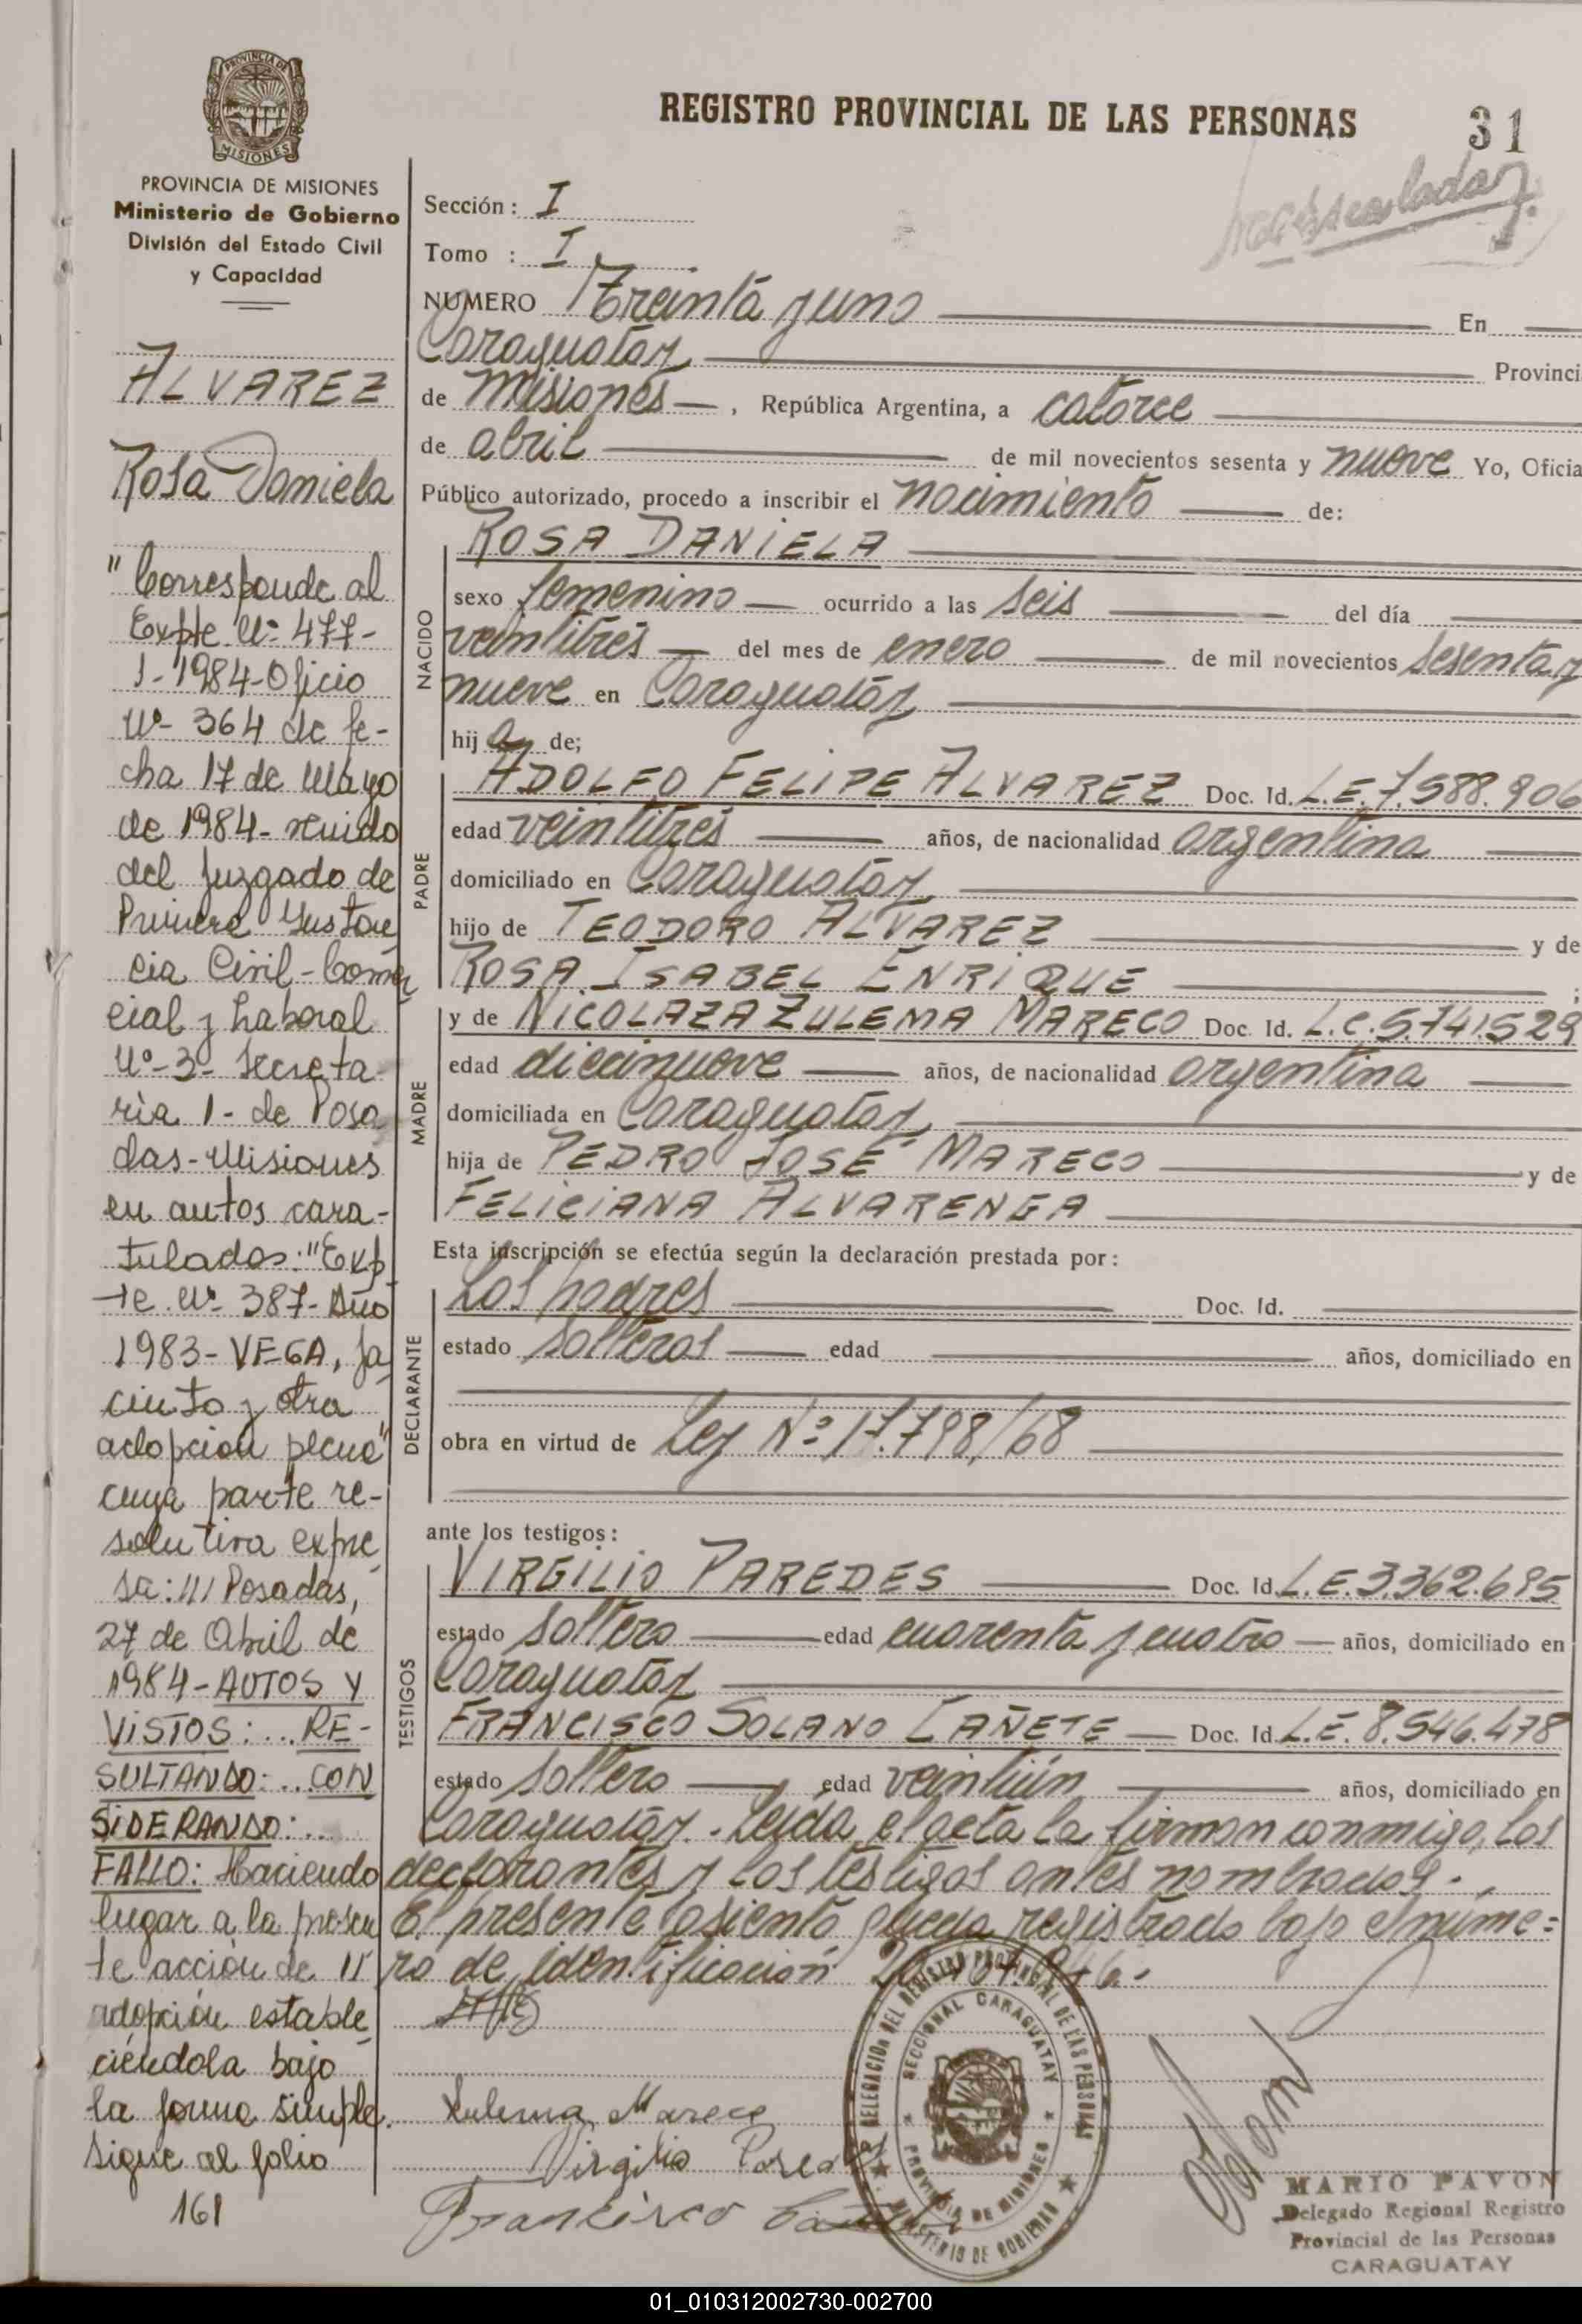 REGISTRO PROVINCIAL DE LAS PERSONAS
31
PROVINCIA DE MISIONES
Ministerio de Gobierno
División del Estado Civil
y Capacidad
ALVAREZ
Rosa Daniela
"Corresponde al
Expte Nº 477-
1-1984-Oficio
Nº 364 de fe-
cha 17 de Mayo
de 1984- venido
del Juzgado de
Primera Instan
cia Civil-Comer
cial y Laboral
Nº-3- Secreta
ria 1- de Posa
das-Misiones
en autos cara-
tulados: "Exp
te. Nº 387- Año
1983- VEGA, Ja
cinto y otra
adopción plena"
cuya parte re-
solutiva expre
sa: "Posadas,
27 de Abril de
1984- AUTOS Y
VISTOS: ... RE-
SULTANDO: .. CON
SIDERANDO: ..
FALLO: Haciendo
lugar a la presen
te acción de
adopción estable
ciéndola bajo
la forma simple.
Sigue al folio
161
Sección: I
Tomo : I
NUMERO Treinta y uno En
Caraguatay Provinci
de Misiones, República Argentina, a catorce
de abril de mil novecientos sesenta y nueve Yo, Oficia
Público autorizado, procedo a inscribir el nacimiento de:
NACIDO
ROSA DANIELA
sexo femenino ocurrido a las seis del día
veintitrés del mes de enero de mil novecientos sesenta y
nueve en Caraguatáy
hij a de;
PADRE
ADOLFO FELIPE ALVAREZ Doc. Id. L.E.7.588.906
edad veintitrés años, de nacionalidad argentina
domiciliado en Caraguatáy
hijo de TEODORO ALVAREZ y de
ROSA ISABEL ENRIQUE ;
MADRE
y de NICOLAZA ZULEMA MARECO Doc. Id. L.C.5.741.529
edad diecinueve años, de nacionalidad argentina
domiciliada en Caraguatay
hija de PEDRO JOSÉ MARECO y de
FELICIANA ALVARENGA
Esta inscripción se efectúa según la declaración prestada por:
DECLARANTE
Los padres Doc. Id.
estado solteros edad años, domiciliado en
obra en virtud de Ley Nº 17.798/68
ante los testigos:
TESTIGOS
VIRGILIO PAREDES Doc. Id. L.E.3.362.695
estado soltero edad cuarenta y cuatro años, domiciliado en
Caraguatáy
FRANCISCO SOLANO CAÑETE Doc. Id. L.E. 8.546.478
estado soltero edad veintiún años, domiciliado en
Caraguatáy.- Leída el acta la firman conmigo, los
declarantes y los testigos antes nombrados.-
El presente asiento queda registrado bajo el núme=
ro de identificación
Zulema Mareco
Virgilio Pared
Francisco
DELEGACION DEL REGISTRO PROVINCIAL DE LAS PERSONAS
SECCIONAL CARAGUATAY
PROVINCIA DE MISIONES
MINISTERIO DE GOBIERNO
MARIO PAVON
Delegado Regional Registro
Provincial de las Personas
CARAGUATAY
01_010312002730-002700